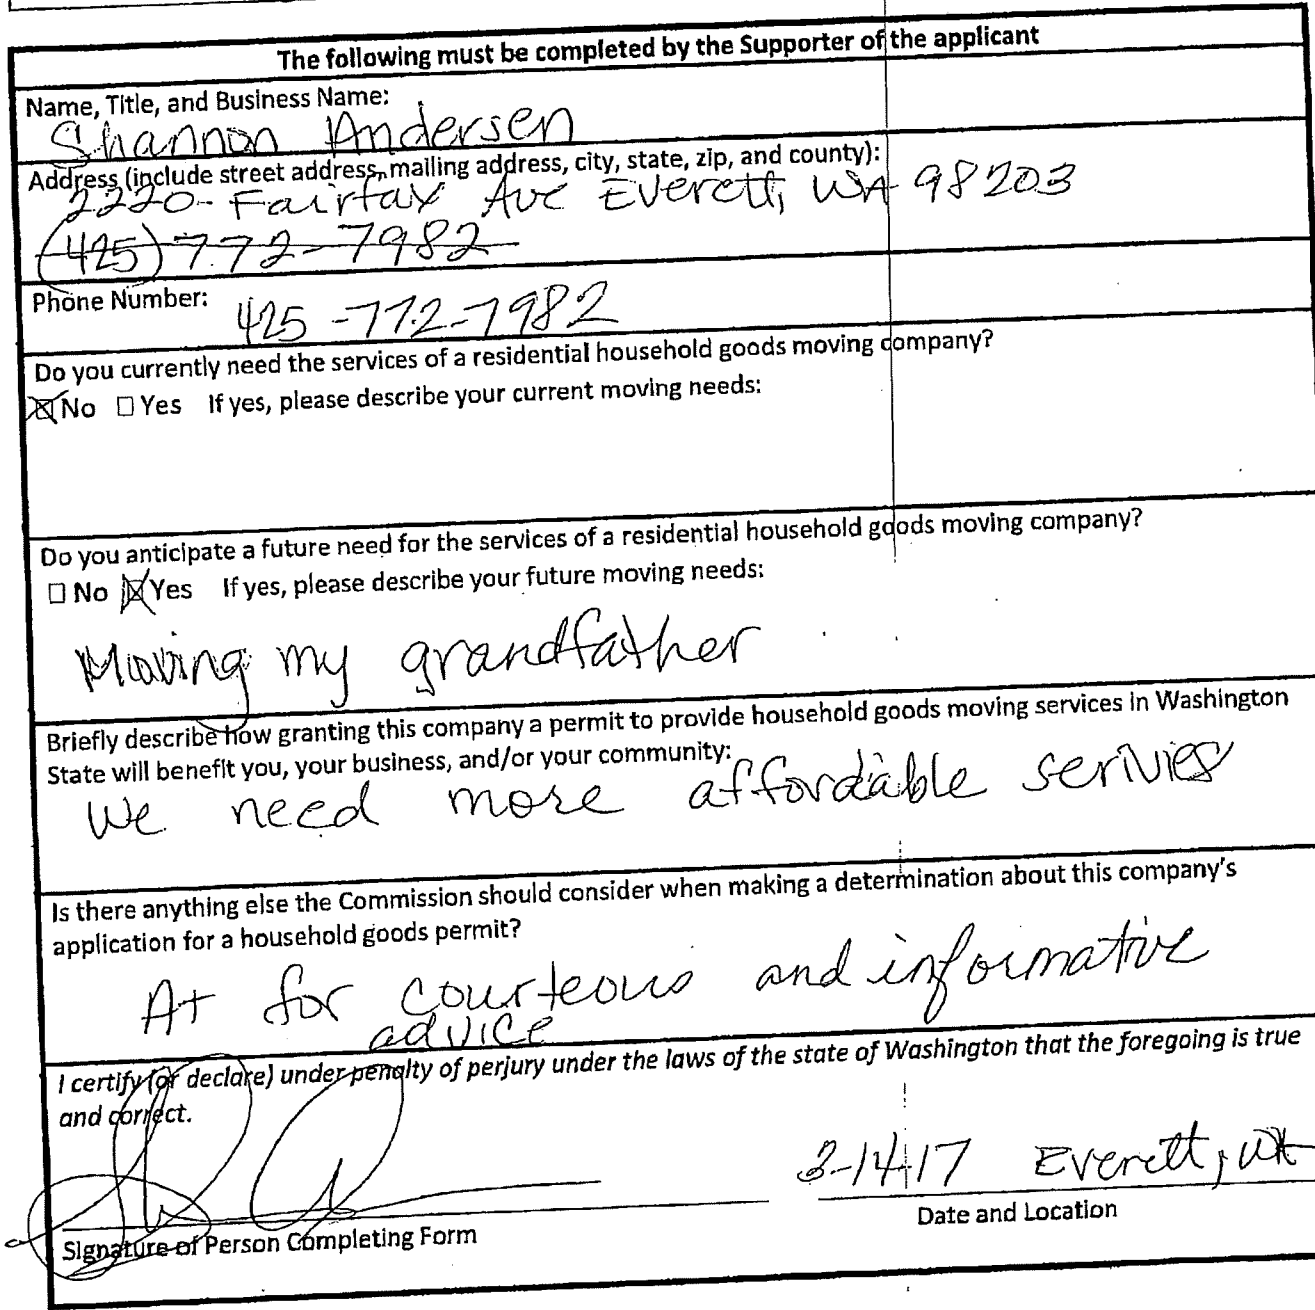 The following must be completed by the Supporter of the applicant
Name, Title, and Business Name:
Shannon Andersen
Address (include street address, mailing address, city, state, zip, and county):
2220 Fairfax Ave Everett, WA 98203
(425) 772-7982
Phone Number: 425-772-7982
Do you currently need the services of a residential household goods moving company?
☒ No ☐ Yes If yes, please describe your current moving needs:
Do you anticipate a future need for the services of a residential household goods moving company?
☐ No ☒ Yes If yes, please describe your future moving needs:
Moving my grandfather
Briefly describe how granting this company a permit to provide household goods moving services in Washington
State will benefit you, your business, and/or your community:
We need more affordable serivies
Is there anything else the Commission should consider when making a determination about this company's
application for a household goods permit?
A+ for courteous and informative
advice
I certify (or declare) under penalty of perjury under the laws of the state of Washington that the foregoing is true
and correct.
3-14-17 Everett, WA
Signature of Person Completing Form
Date and Location